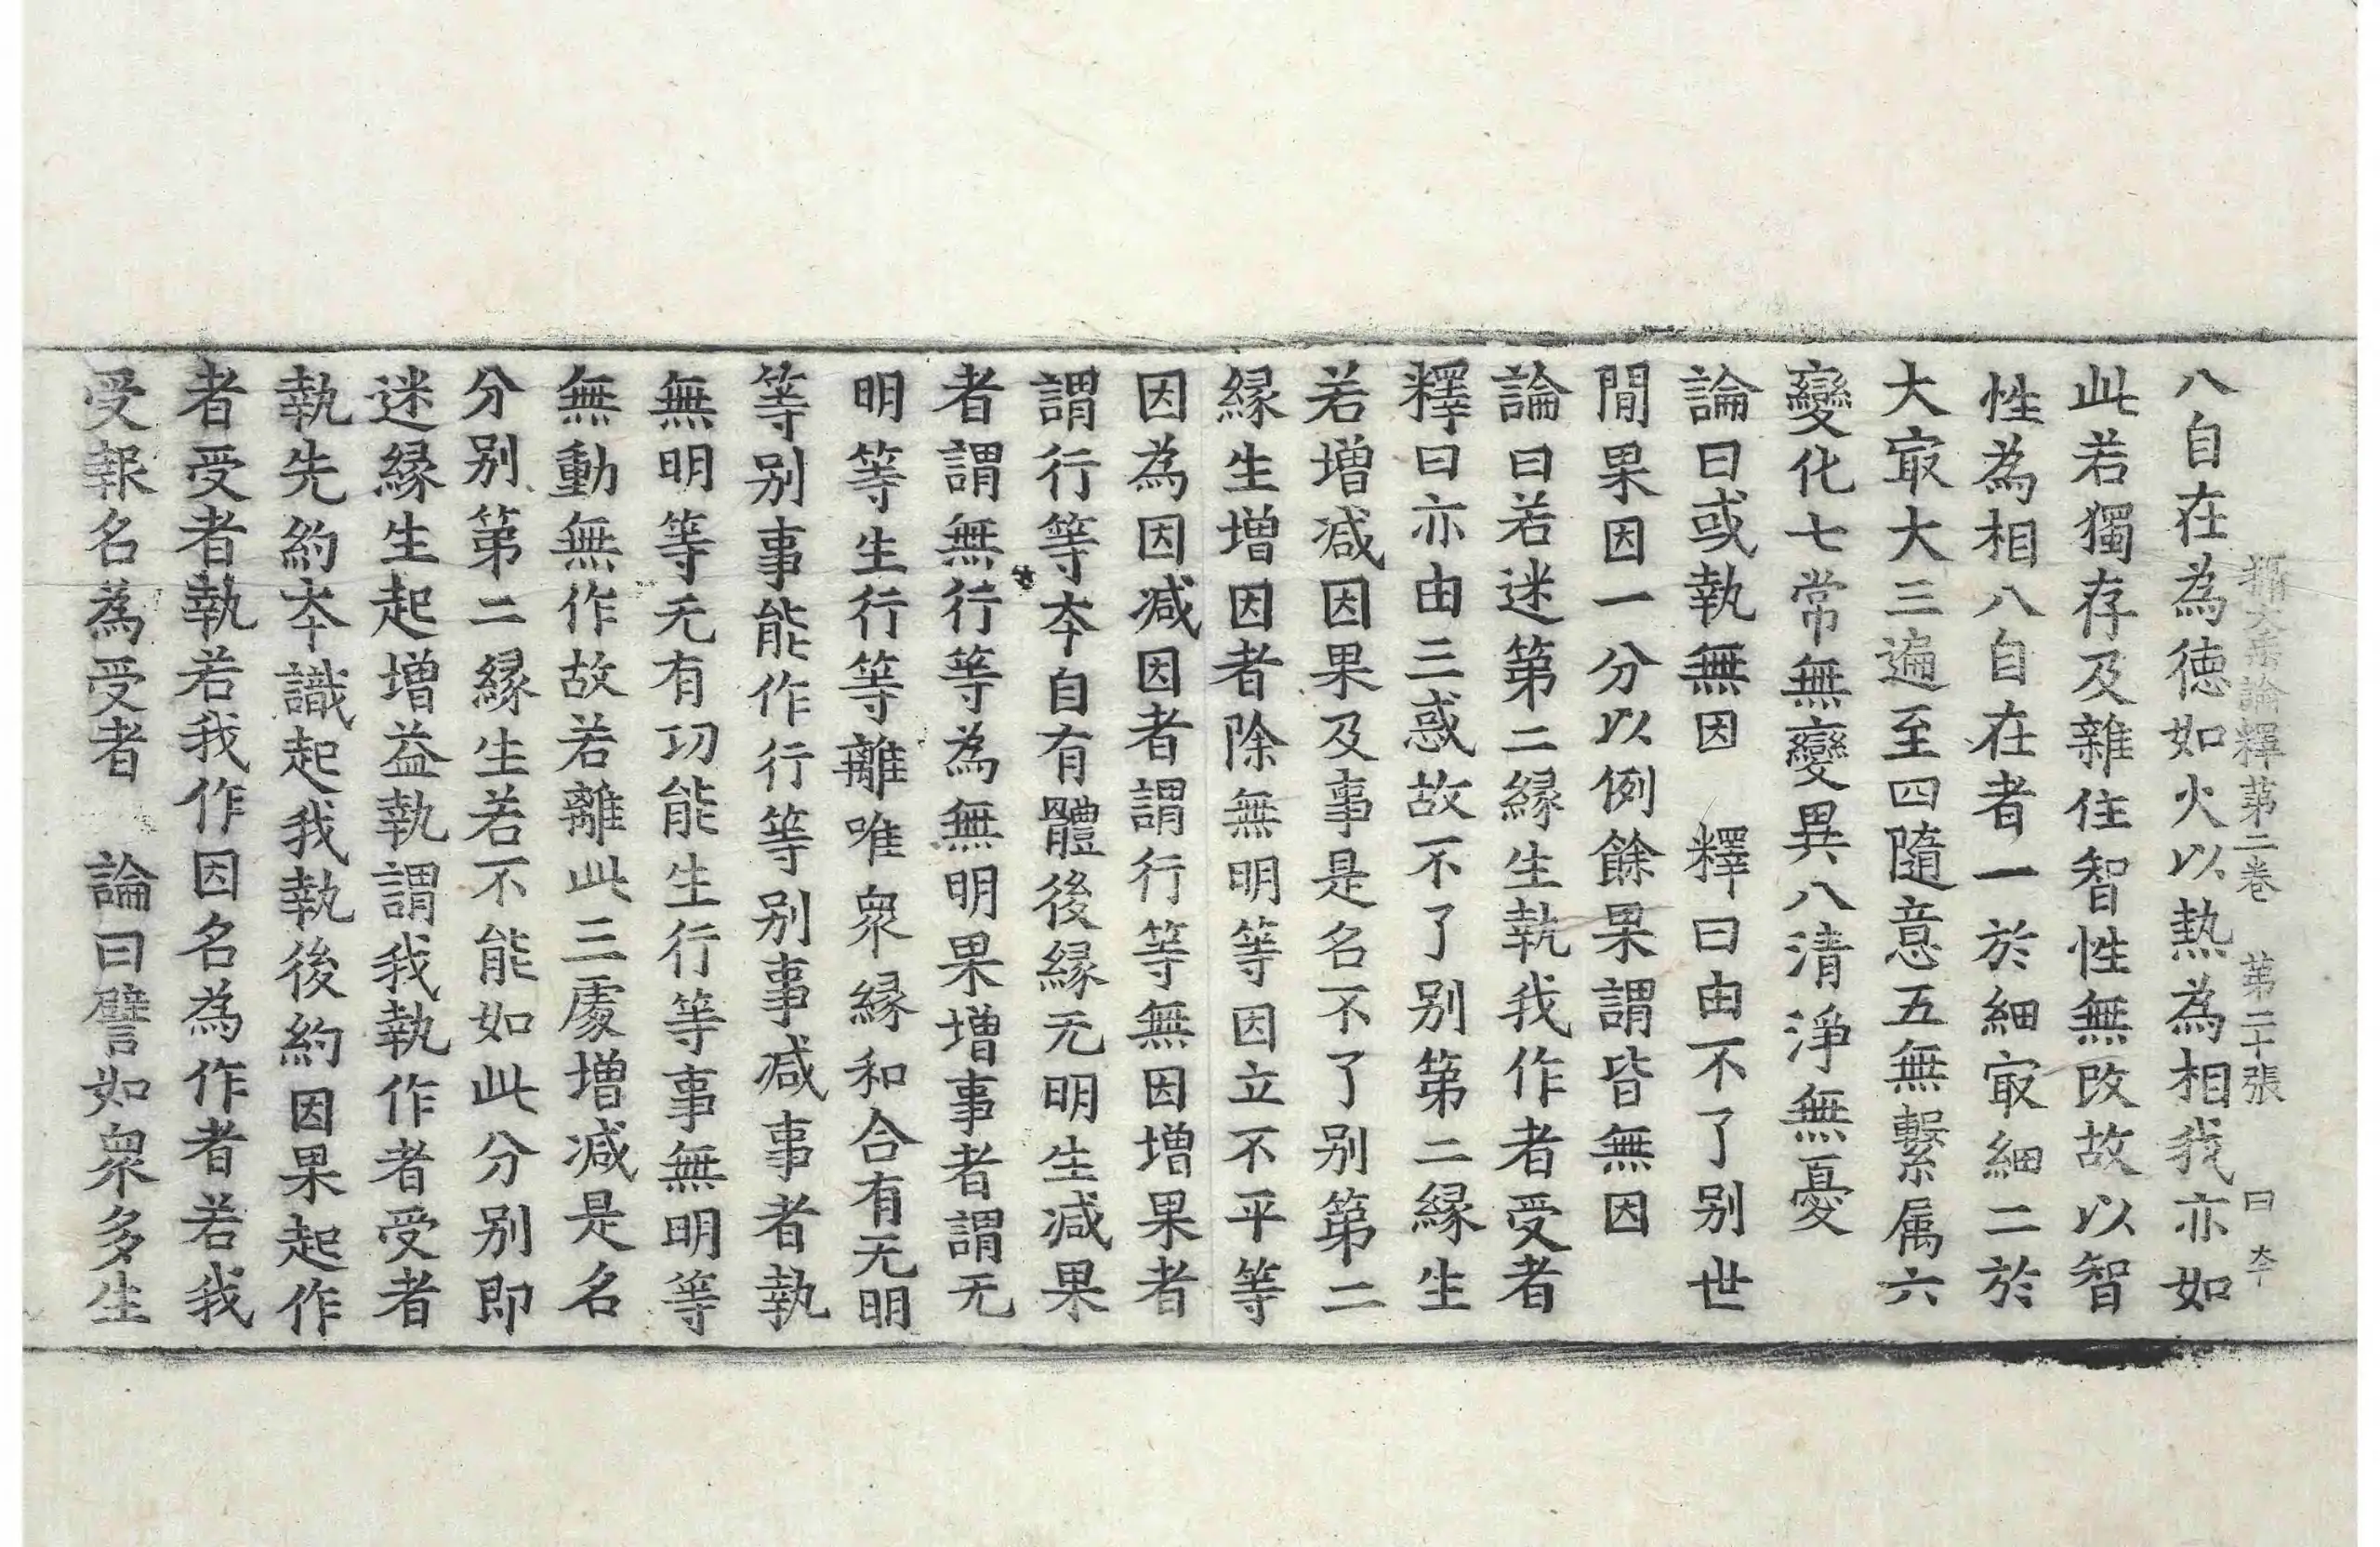 攝大乗論釋第二卷　第二十張　曰　夲
八自在為徳如火以熱為相我亦如
此若獨存及雜住智性無改故以智
性為相八自在者一於細㝡細二於
大㝡大三遍至四隨意五無繫属六
變化七常無變異八清淨無憂
論曰或執無因　釋曰由不了别世
閒果因一分以例餘果謂皆無因
論曰若迷第二縁生執我作者受者
釋曰亦由三惑故不了别第二縁生
若增减因果及事是名不了别第二
縁生增因者除無明等因立不平等
因為因减因者謂行等無因增果者
謂行等夲自有體後縁无明生减果
者謂無行等為無明果增事者謂无
明等生行等離唯衆縁和合有无明
等别事能作行等别事减事者執
無明等无有功能生行等事無明等
無動無作故若離此三處增减是名
分别第二縁生若不能如此分别即
迷縁生起增益執謂我執作者受者
執先約夲識起我執後約因果起作
者受者執若我作因名為作者若我
受報名為受者　論曰譬如衆多生